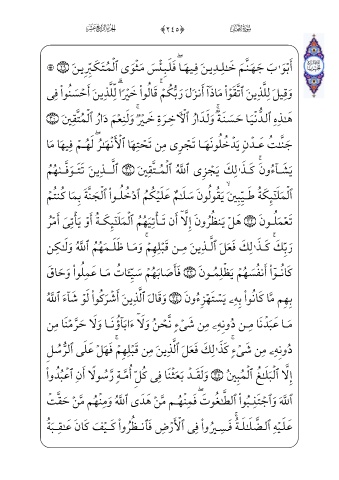 الجزء الرابع عشر ﴿٢٤٥﴾ سورة النحل
أَبْوَٰبَ جَهَنَّمَ خَـٰلِدِينَ فِيهَاۖ فَلَبِئْسَ مَثْوَى ٱلْمُتَكَبِّرِينَ
وَقِيلَ لِلَّذِينَ ٱتَّقَوْا۟ مَاذَآ أَنزَلَ رَبُّكُمْۚ قَالُوا۟ خَيْرًاۗ لِّلَّذِينَ أَحْسَنُوا۟ فِى
هَـٰذِهِ ٱلدُّنْيَا حَسَنَةٌۚ وَلَدَارُ ٱلْـَٔاخِرَةِ خَيْرٌۚ وَلَنِعْمَ دَارُ ٱلْمُتَّقِينَ
جَنَّـٰتُ عَدْنٍ يَدْخُلُونَهَا تَجْرِى مِن تَحْتِهَا ٱلْأَنْهَـٰرُۖ لَهُمْ فِيهَا مَا
يَشَآءُونَۚ كَذَٰلِكَ يَجْزِى ٱللَّهُ ٱلْمُتَّقِينَ ٱلَّذِينَ تَتَوَفَّىٰهُمُ
ٱلْمَلَـٰٓئِكَةُ طَيِّبِينَۙ يَقُولُونَ سَلَـٰمٌ عَلَيْكُمُ ٱدْخُلُوا۟ ٱلْجَنَّةَ بِمَا كُنتُمْ
تَعْمَلُونَ هَلْ يَنظُرُونَ إِلَّآ أَن تَأْتِيَهُمُ ٱلْمَلَـٰٓئِكَةُ أَوْ يَأْتِىَ أَمْرُ
رَبِّكَۚ كَذَٰلِكَ فَعَلَ ٱلَّذِينَ مِن قَبْلِهِمْۚ وَمَا ظَلَمَهُمُ ٱللَّهُ وَلَـٰكِن
كَانُوٓا۟ أَنفُسَهُمْ يَظْلِمُونَ فَأَصَابَهُمْ سَيِّـَٔاتُ مَا عَمِلُوا۟ وَحَاقَ
بِهِم مَّا كَانُوا۟ بِهِۦ يَسْتَهْزِءُونَ وَقَالَ ٱلَّذِينَ أَشْرَكُوا۟ لَوْ شَآءَ ٱللَّهُ
مَا عَبَدْنَا مِن دُونِهِۦ مِن شَىْءٍ نَّحْنُ وَلَآ ءَابَآؤُنَا وَلَا حَرَّمْنَا مِن
دُونِهِۦ مِن شَىْءٍۚ كَذَٰلِكَ فَعَلَ ٱلَّذِينَ مِن قَبْلِهِمْۚ فَهَلْ عَلَى ٱلرُّسُلِ
إِلَّا ٱلْبَلَـٰغُ ٱلْمُبِينُ وَلَقَدْ بَعَثْنَا فِى كُلِّ أُمَّةٍ رَّسُولًا أَنِ ٱعْبُدُوا۟
ٱللَّهَ وَٱجْتَنِبُوا۟ ٱلطَّـٰغُوتَۖ فَمِنْهُم مَّنْ هَدَى ٱللَّهُ وَمِنْهُم مَّنْ حَقَّتْ
عَلَيْهِ ٱلضَّلَـٰلَةُۚ فَسِيرُوا۟ فِى ٱلْأَرْضِ فَٱنظُرُوا۟ كَيْفَ كَانَ عَـٰقِبَةُ